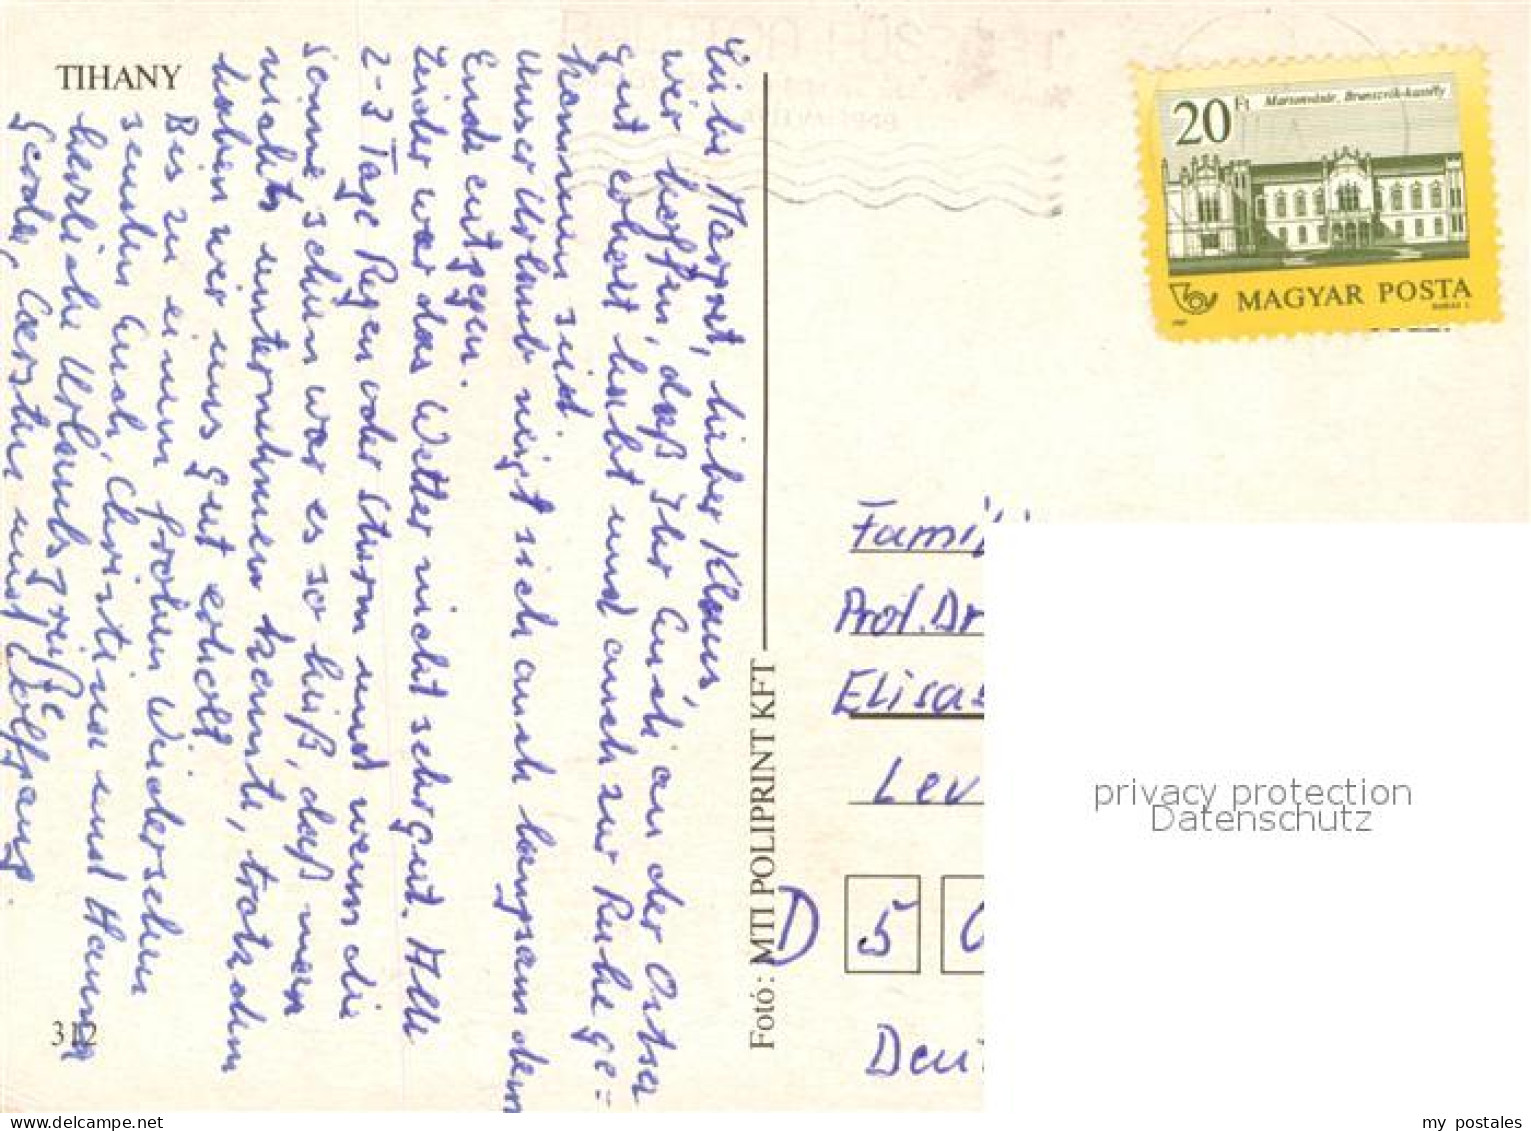 TIHANY
Liebe Margret, lieber Klaus,
wir hoffen, daß Ihr Euch an der Ostsee
gut erholt habt und auch zur Ruhe ge=
kommen seid.
Unser Urlaub neigt sich auch langsam dem
Ende entgegen.
Leider war das Wetter nicht sehr gut. Alle
2-3 Tage Regen oder Sturm und wenn die
Sonne schien war es so heiß, daß man
nichts unternehmen konnte, trotzdem
haben wir uns gut erholt
Bis zu einem frohen Wiedersehen
senden Euch, Christina und Hanna
herzliche Urlaubsgrüße
Gerda, Carsten und Wolfgang.
312
Fotó: MTI POLIPRINT KFT
20 Ft
Martonvásár, Brunszvik-kastély
MAGYAR POSTA
Famili
Prof. Dr
Elisa
Lev
D 5 0
Deu
privacy protection
Datenschutz
my postales